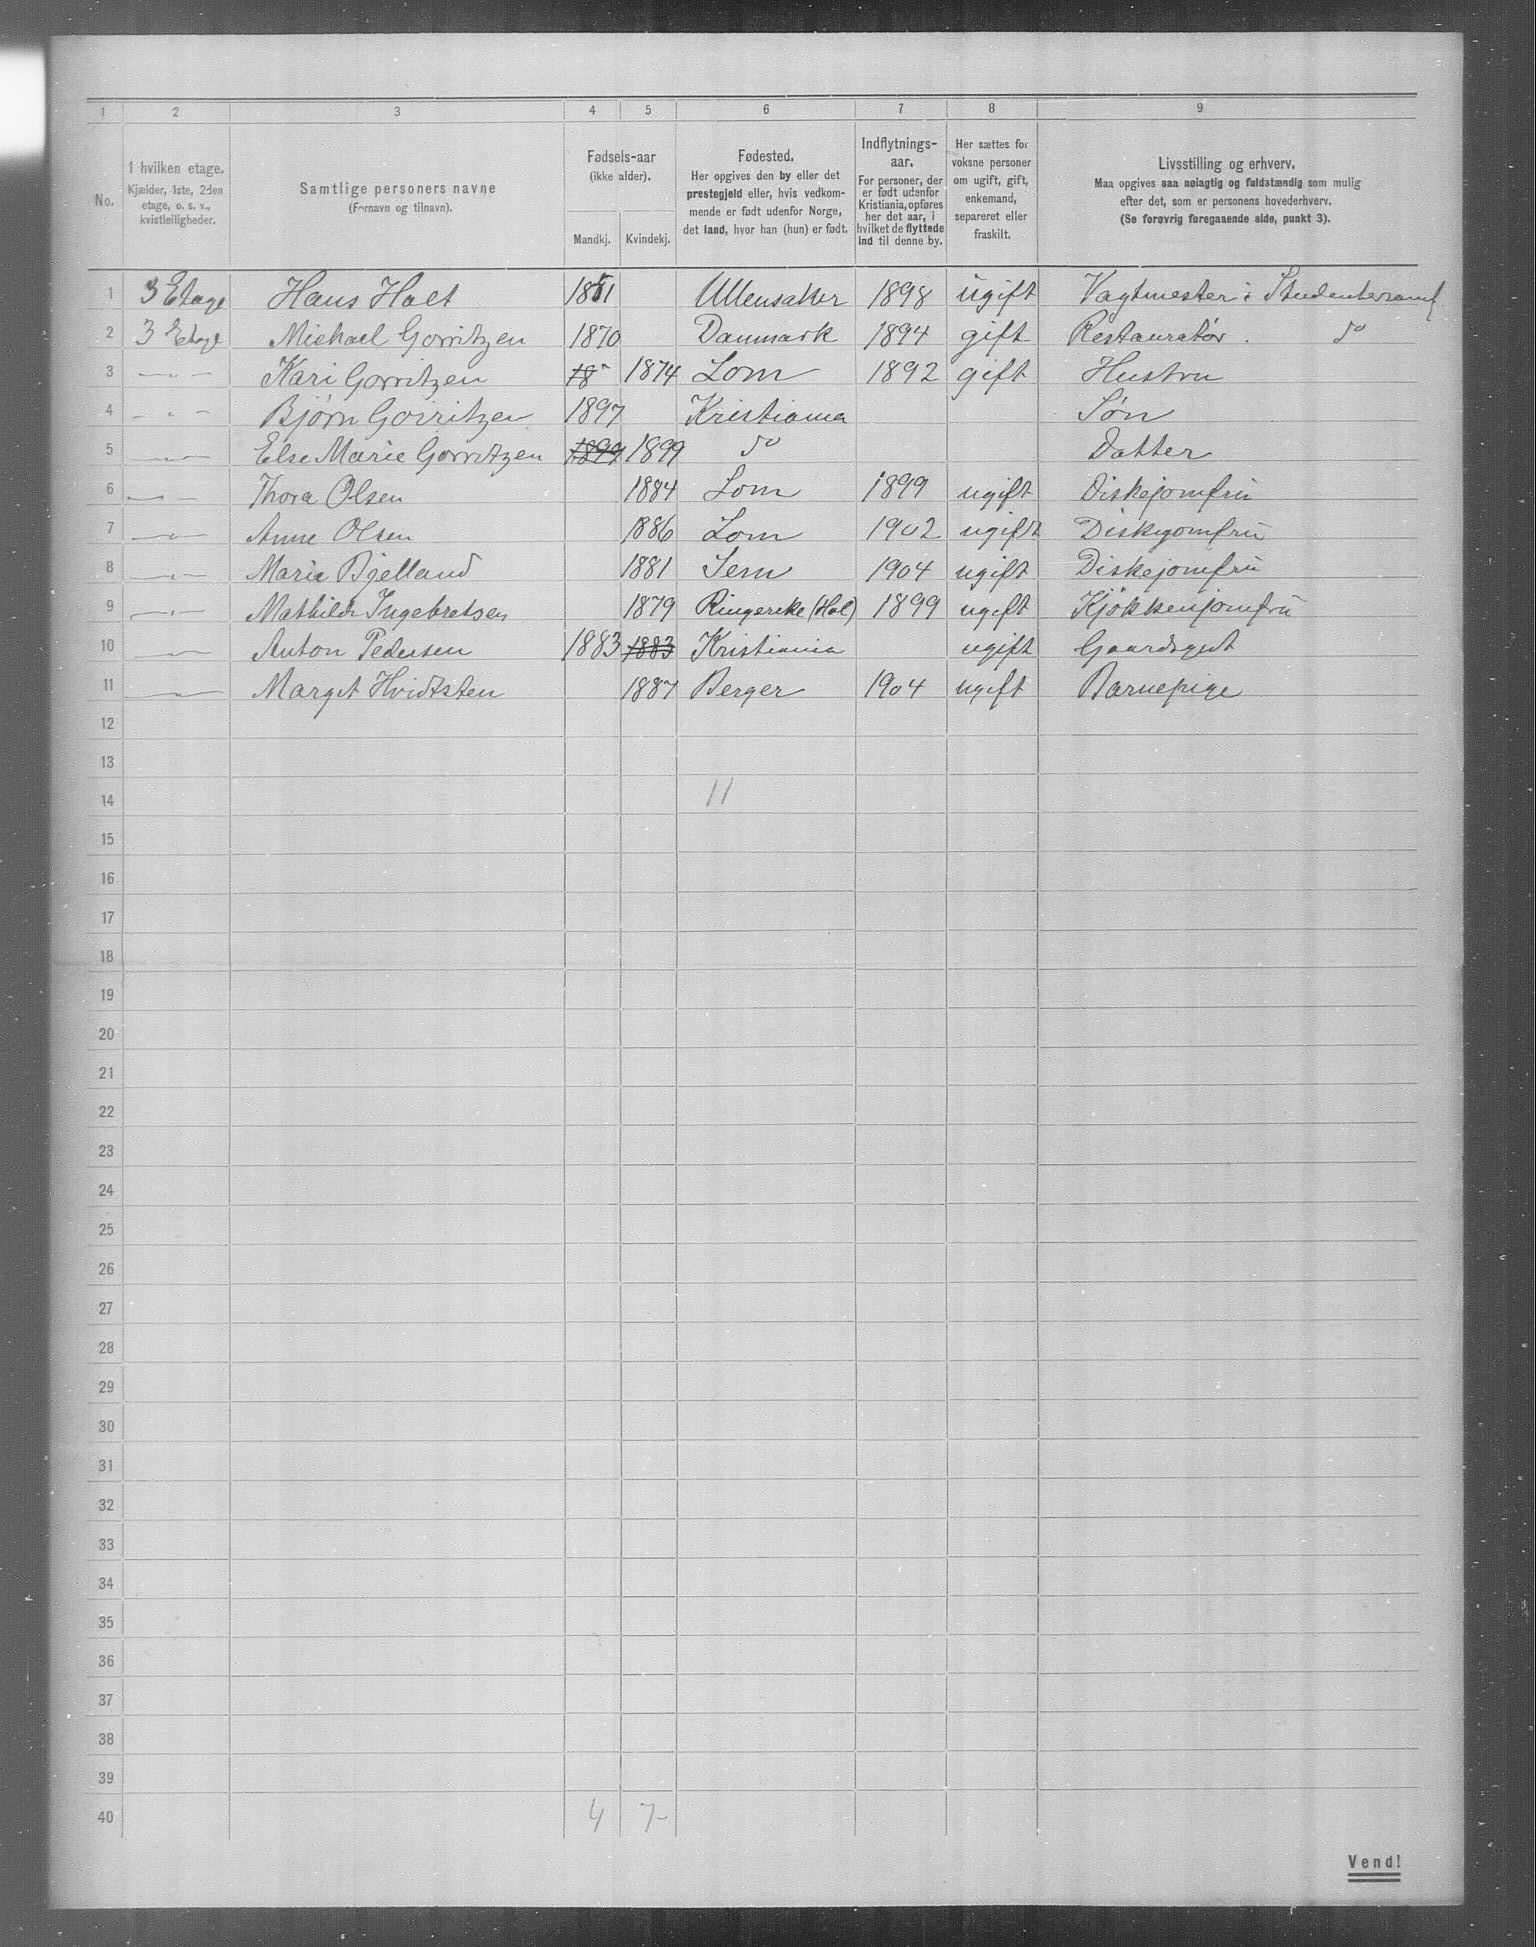 1 2 3 4 5 6 7 8 9
No.
I hvilken etage.
Kjælder, 1ste, 2den
etage, o. s. v.,
kvistleiligheder.
Samtlige personers navne
(Fornavn og tilnavn).
Fødsels-aar
(ikke alder).
Mandkj. Kvindekj.
Fødested.
Her opgives den by eller det
prestegjeld eller, hvis vedkom-
mende er født udenfor Norge,
det land, hvor han (hun) er født.
Indflytnings-
aar.
For personer, der
er født udenfor
Kristiania, opføres
her det aar, i
hvilket de flyttede
ind til denne by.
Her sættes for
voksne personer
om ugift, gift,
enkemand,
separeret eller
fraskilt.
Livsstilling og erhverv.
Maa opgives saa nøiagtig og fuldstændig som mulig
efter det, som er personens hovederhverv.
(Se forøvrig foregaaende side, punkt 3).
1 3 Etage Hans Holt Ullensaker 1898 ugift Vagtmester i Studentersamf
2 3 Etage Michael Gorritzen 1870 Danmark 1894 gift Restauratør . do
3 — " — Kari Gorritzen 18 1874 Lom 1892 gift Hustru
4 — " — Bjørn Gorritzen 1897 Kristiania Søn
5 — " — Else Marie Gorritzen 1899 1899 do Datter
6 — " — Thora Olsen 1884 Lom 1899 ugift Diskejomfru
7 — " — Anne Olsen 1886 Lom 1902 ugift Diskejomfru
8 — " — Marie Bjelland 1881 Sem 1904 ugift Diskejomfru
9 — " — Mathilde Ingebretsen 1879 Ringerike (Hol) 1899 ugift Kjøkkenjomfru
10 — " — Anton Pedersen 1883 1883 Kristiania ugift Gaardsgut
11 — " — Marget Hvidtsten 1887 Berger 1904 ugift Barnepige
12
13
14 11
15
16
17
18
19
20
21
22
23
24
25
26
27
28
29
30
31
32
33
34
35
36
37
38
39
40 4 7-
Vend!